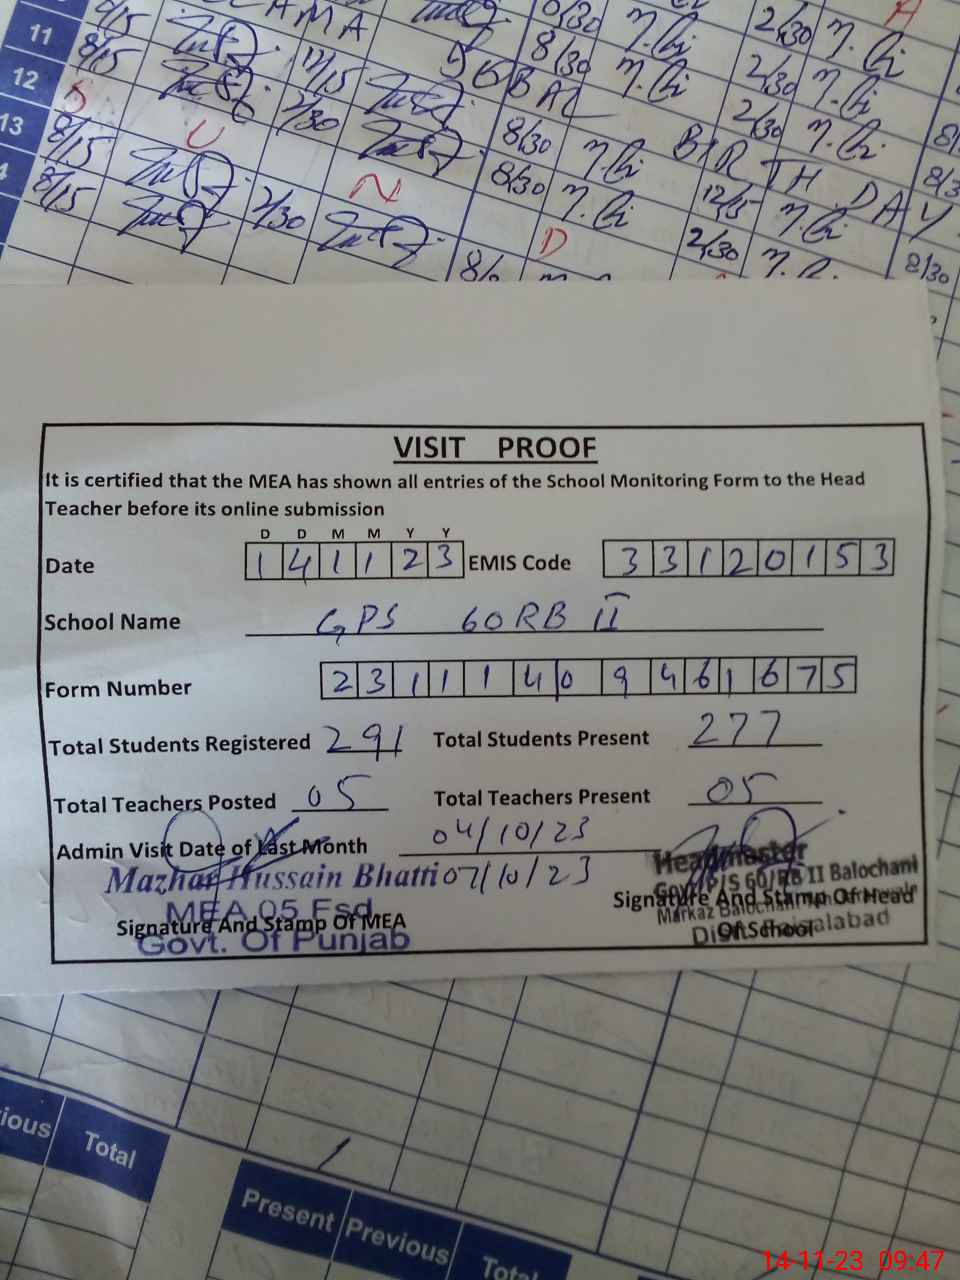 11
12
13
8/15 12/15 8/30 2/30
8/15 2/30 8/30 2/30
IQBAL BIRTH DAY
8/15 8/30 12/15 8/30
8/15 2/30 8/30 2/30 8/30
S U N D A
VISIT PROOF
It is certified that the MEA has shown all entries of the School Monitoring Form to the Head
Teacher before its online submission
D D M M Y Y
Date 1 4 1 1 2 3 EMIS Code 3 3 1 2 0 1 5 3
School Name GPS 60 RB II
Form Number 2 3 1 1 1 4 0 9 4 6 1 6 7 5
Total Students Registered 291 Total Students Present 277
Total Teachers Posted 05 Total Teachers Present 05
Admin Visit Date of Last Month 04/10/23
07/10/23
Mazhar Hussain Bhatti
MEA 05 Fsd
Govt. Of Punjab
Signature And Stamp Of MEA
Headmaster
Govt P/S 60/RB II Balochani
Markaz Balochani
Distt. Faisalabad
Signature And Stamp Of Head
Of School
ious Total
Present Previous Total
14-11-23 09:47